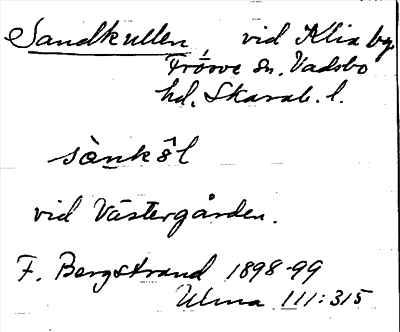 Sandkullen, vid Klia by,
Fröve sn. Vadsbo
hd. Skarab. l.
sànkôl
vid Västergården.
F. Bergstrand 1898-99
Ulma 111:315